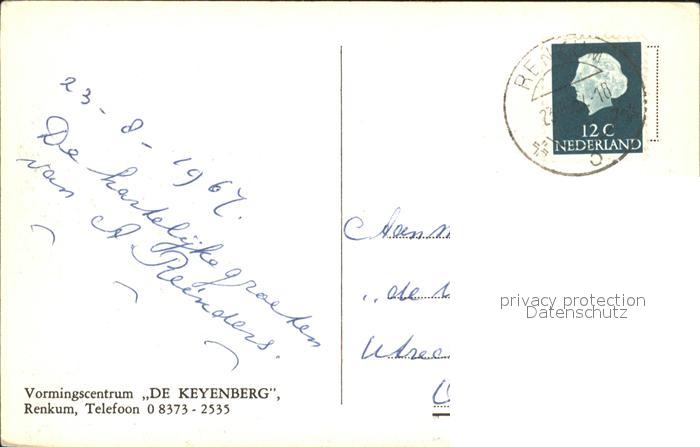 23-8-1967.
De hartelijke groeten
van A. Reinders.
Vormingscentrum „DE KEYENBERG”,
Renkum, Telefoon 0 8373 - 2535
RENKUM
12 C
NEDERLAND
Aan
„de
privacy protection
Datenschutz